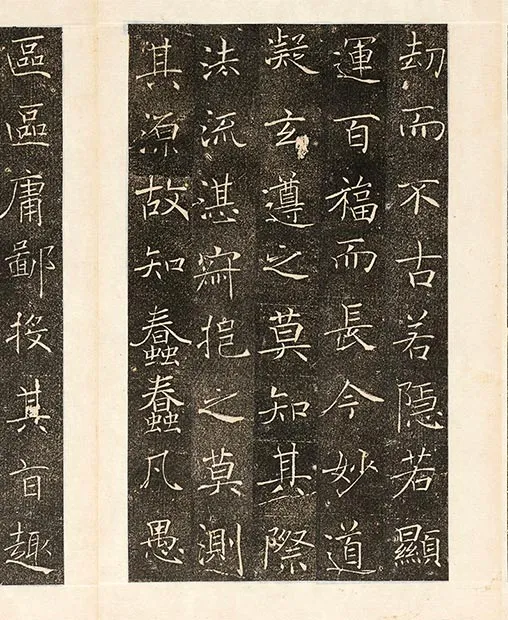 劫而不古若隱若顯
運百福而長今妙道
凝玄遵之莫知其際
法流湛寂挹之莫測
其源故知蠢蠢凡愚
區區庸鄙投其旨趣